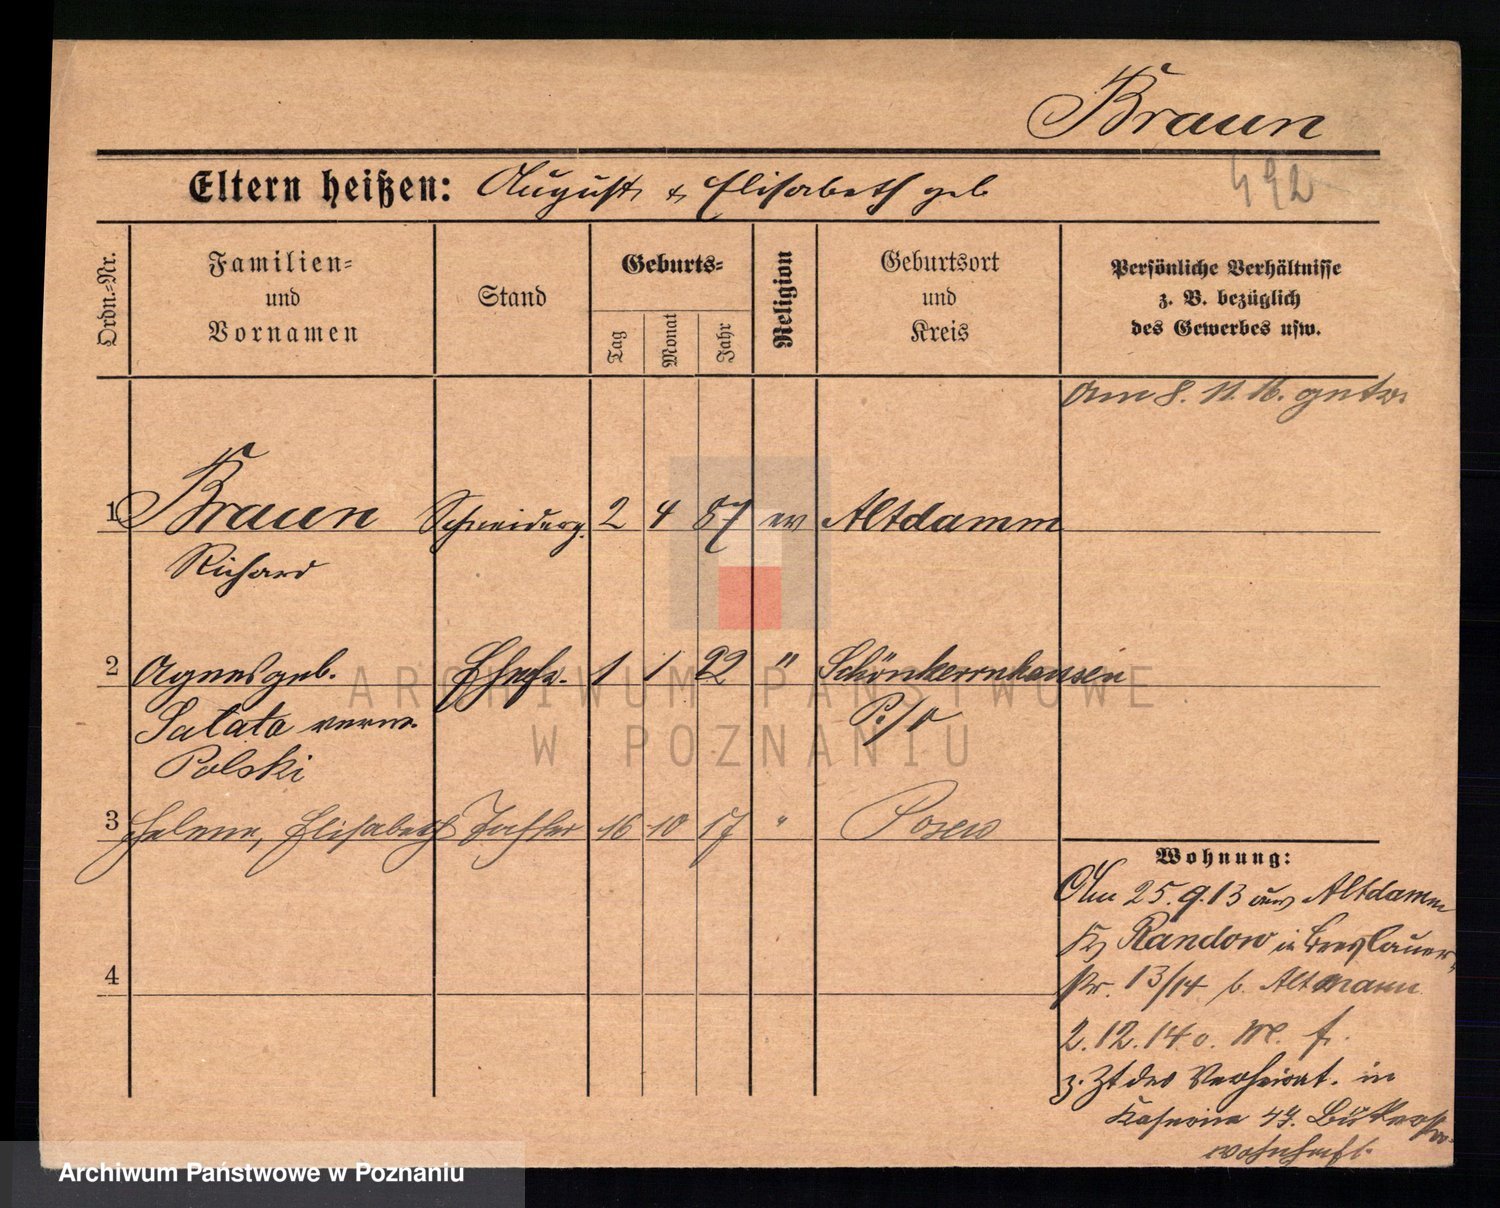 Braun
492
Eltern heißen: August & Elisabeth geb
Ordn.-Nr.
Familien- und Vornamen
Stand
Geburts-
Tag
Monat
Jahr
Religion
Geburtsort und Kreis
Persönliche Verhältnisse
z. B. bezüglich
des Gewerbes usw.
Am 8. 11. 16.
1 Braun Schneiderg. 2 4 87 ev Altdamm
Richard
2 Agnes geb. Ehefr. 1 1 22 " Schönherrnhausen
Salata verw. P./O
Polski
3 Helene, Elisabeth Tochter 16 10 17 " Posen
Wohnung:
Am 25.9.13 aus Altdamm
Kr Randow in Breslauer-
str. 13/14 b. Altmann
4
2.12.14 o. M. f.
z. Zt des Verheirat. in
Kaserne 47.
wohnhaft.
ARCHIWUM PAŃSTWOWE
W POZNANIU
Archiwum Państwowe w Poznaniu